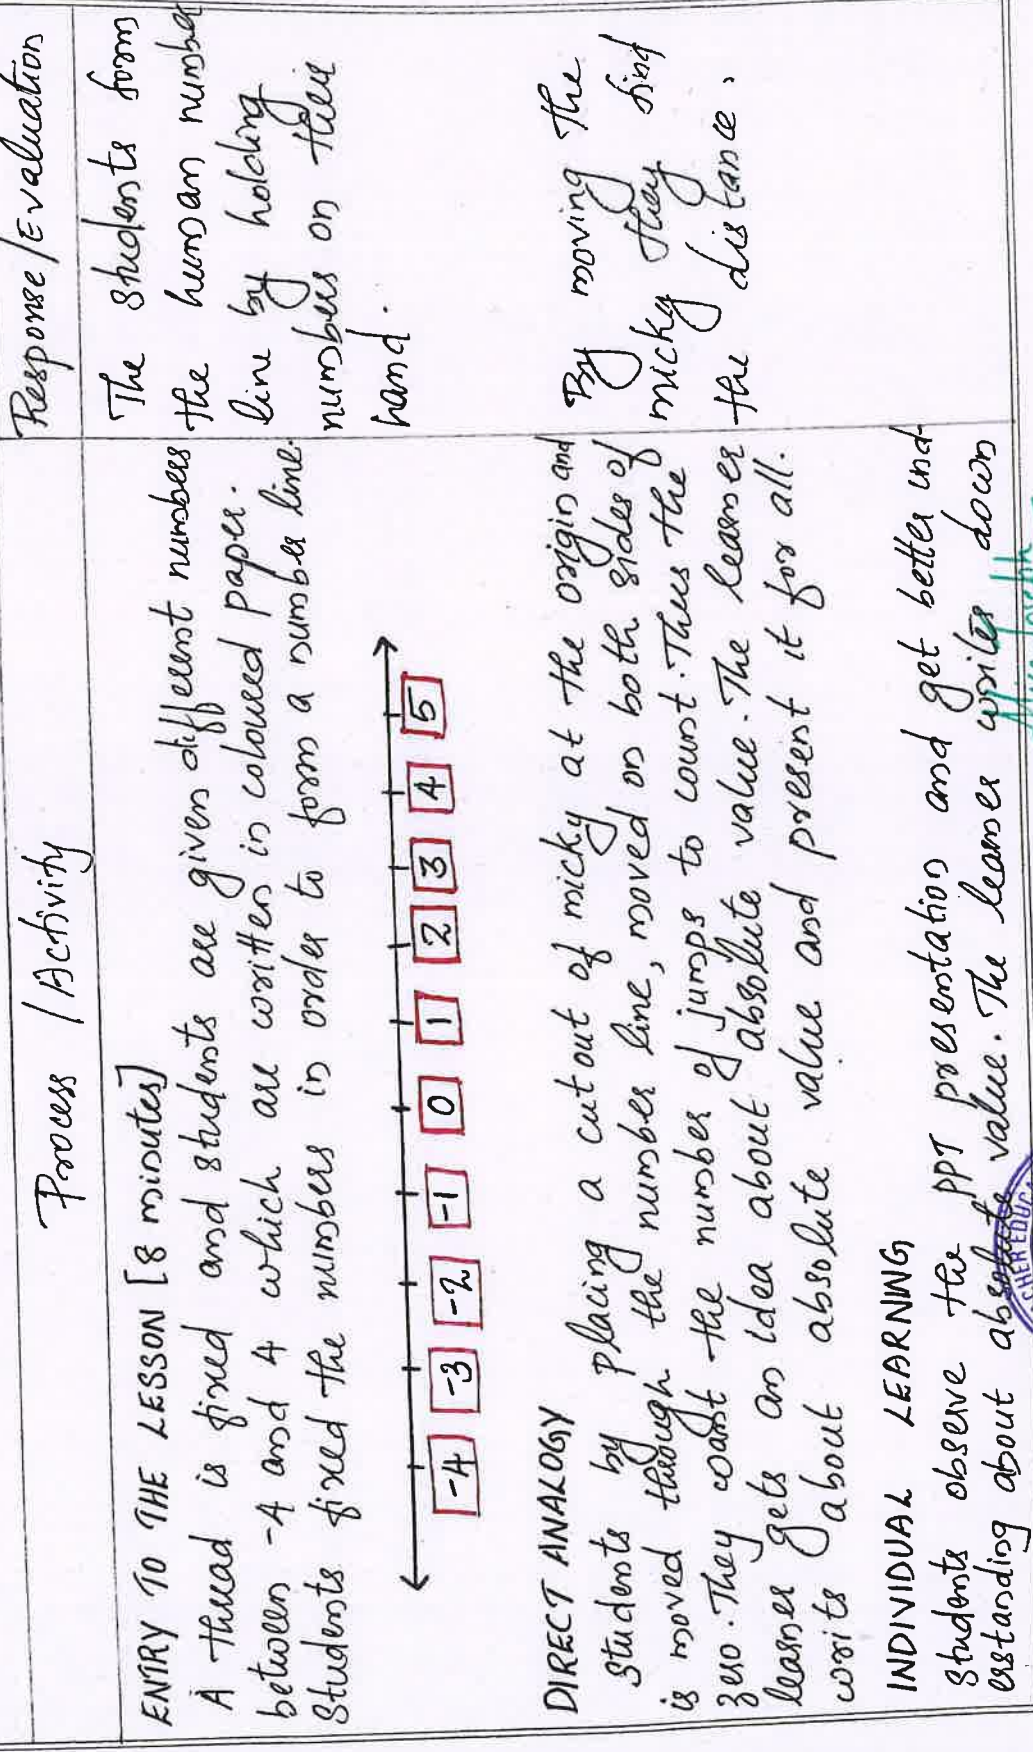 Process / Activity
Response/Evaluation
ENTRY TO THE LESSON [8 minutes]
A thread is fixed and students are given different numbers
between -4 and 4 which are written in coloured paper.
Students fixed the numbers in order to form a number line.
-4 -3 -2 -1 0 1 2 3 4 5
The students form
the human number
line by holding
numbers on their
hand.
DIRECT ANALOGY
Students by placing a cutout of micky at the origin and
is moved through the number line, moved on both sides of
zero. They count the number of jumps to count. Thus the
learner gets an idea about absolute value. The learner
writs about absolute value and present it for all.
By moving the
micky they find
the distance.
INDIVIDUAL LEARNING
Students observe the PPT presentation and get better und-
erstanding about absolute value. The learner writes down